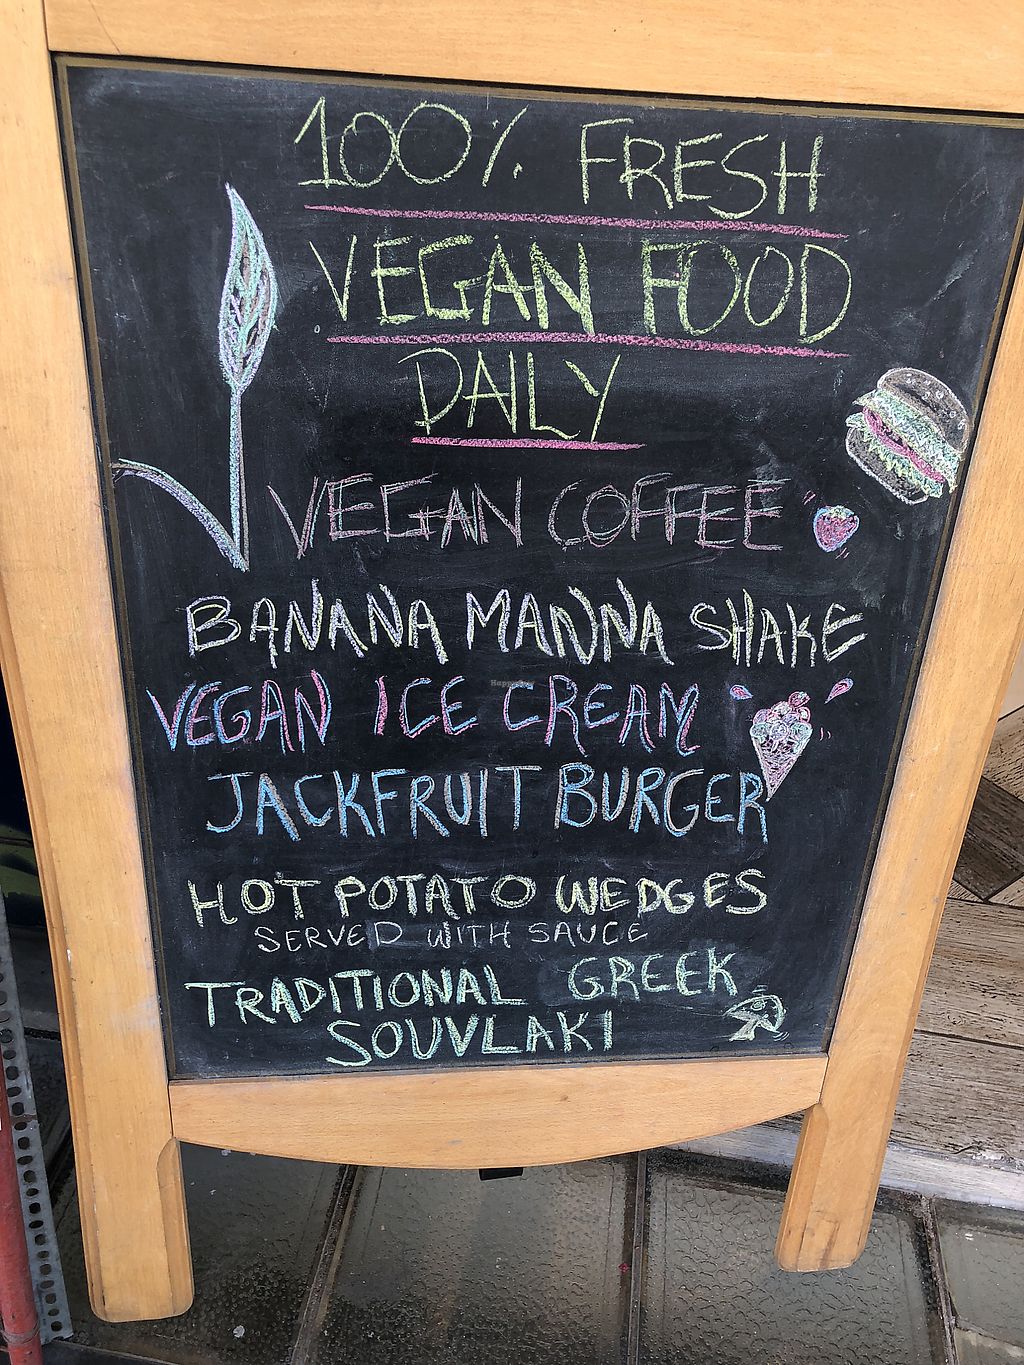 100% FRESH
VEGAN FOOD
DAILY
VEGAN COFFEE
BANANA MANNA SHAKE
VEGAN ICE CREAM
JACKFRUIT BURGER
HOT POTATO WEDGES
SERVED WITH SAUCE
TRADITIONAL GREEK
SOUVLAKI